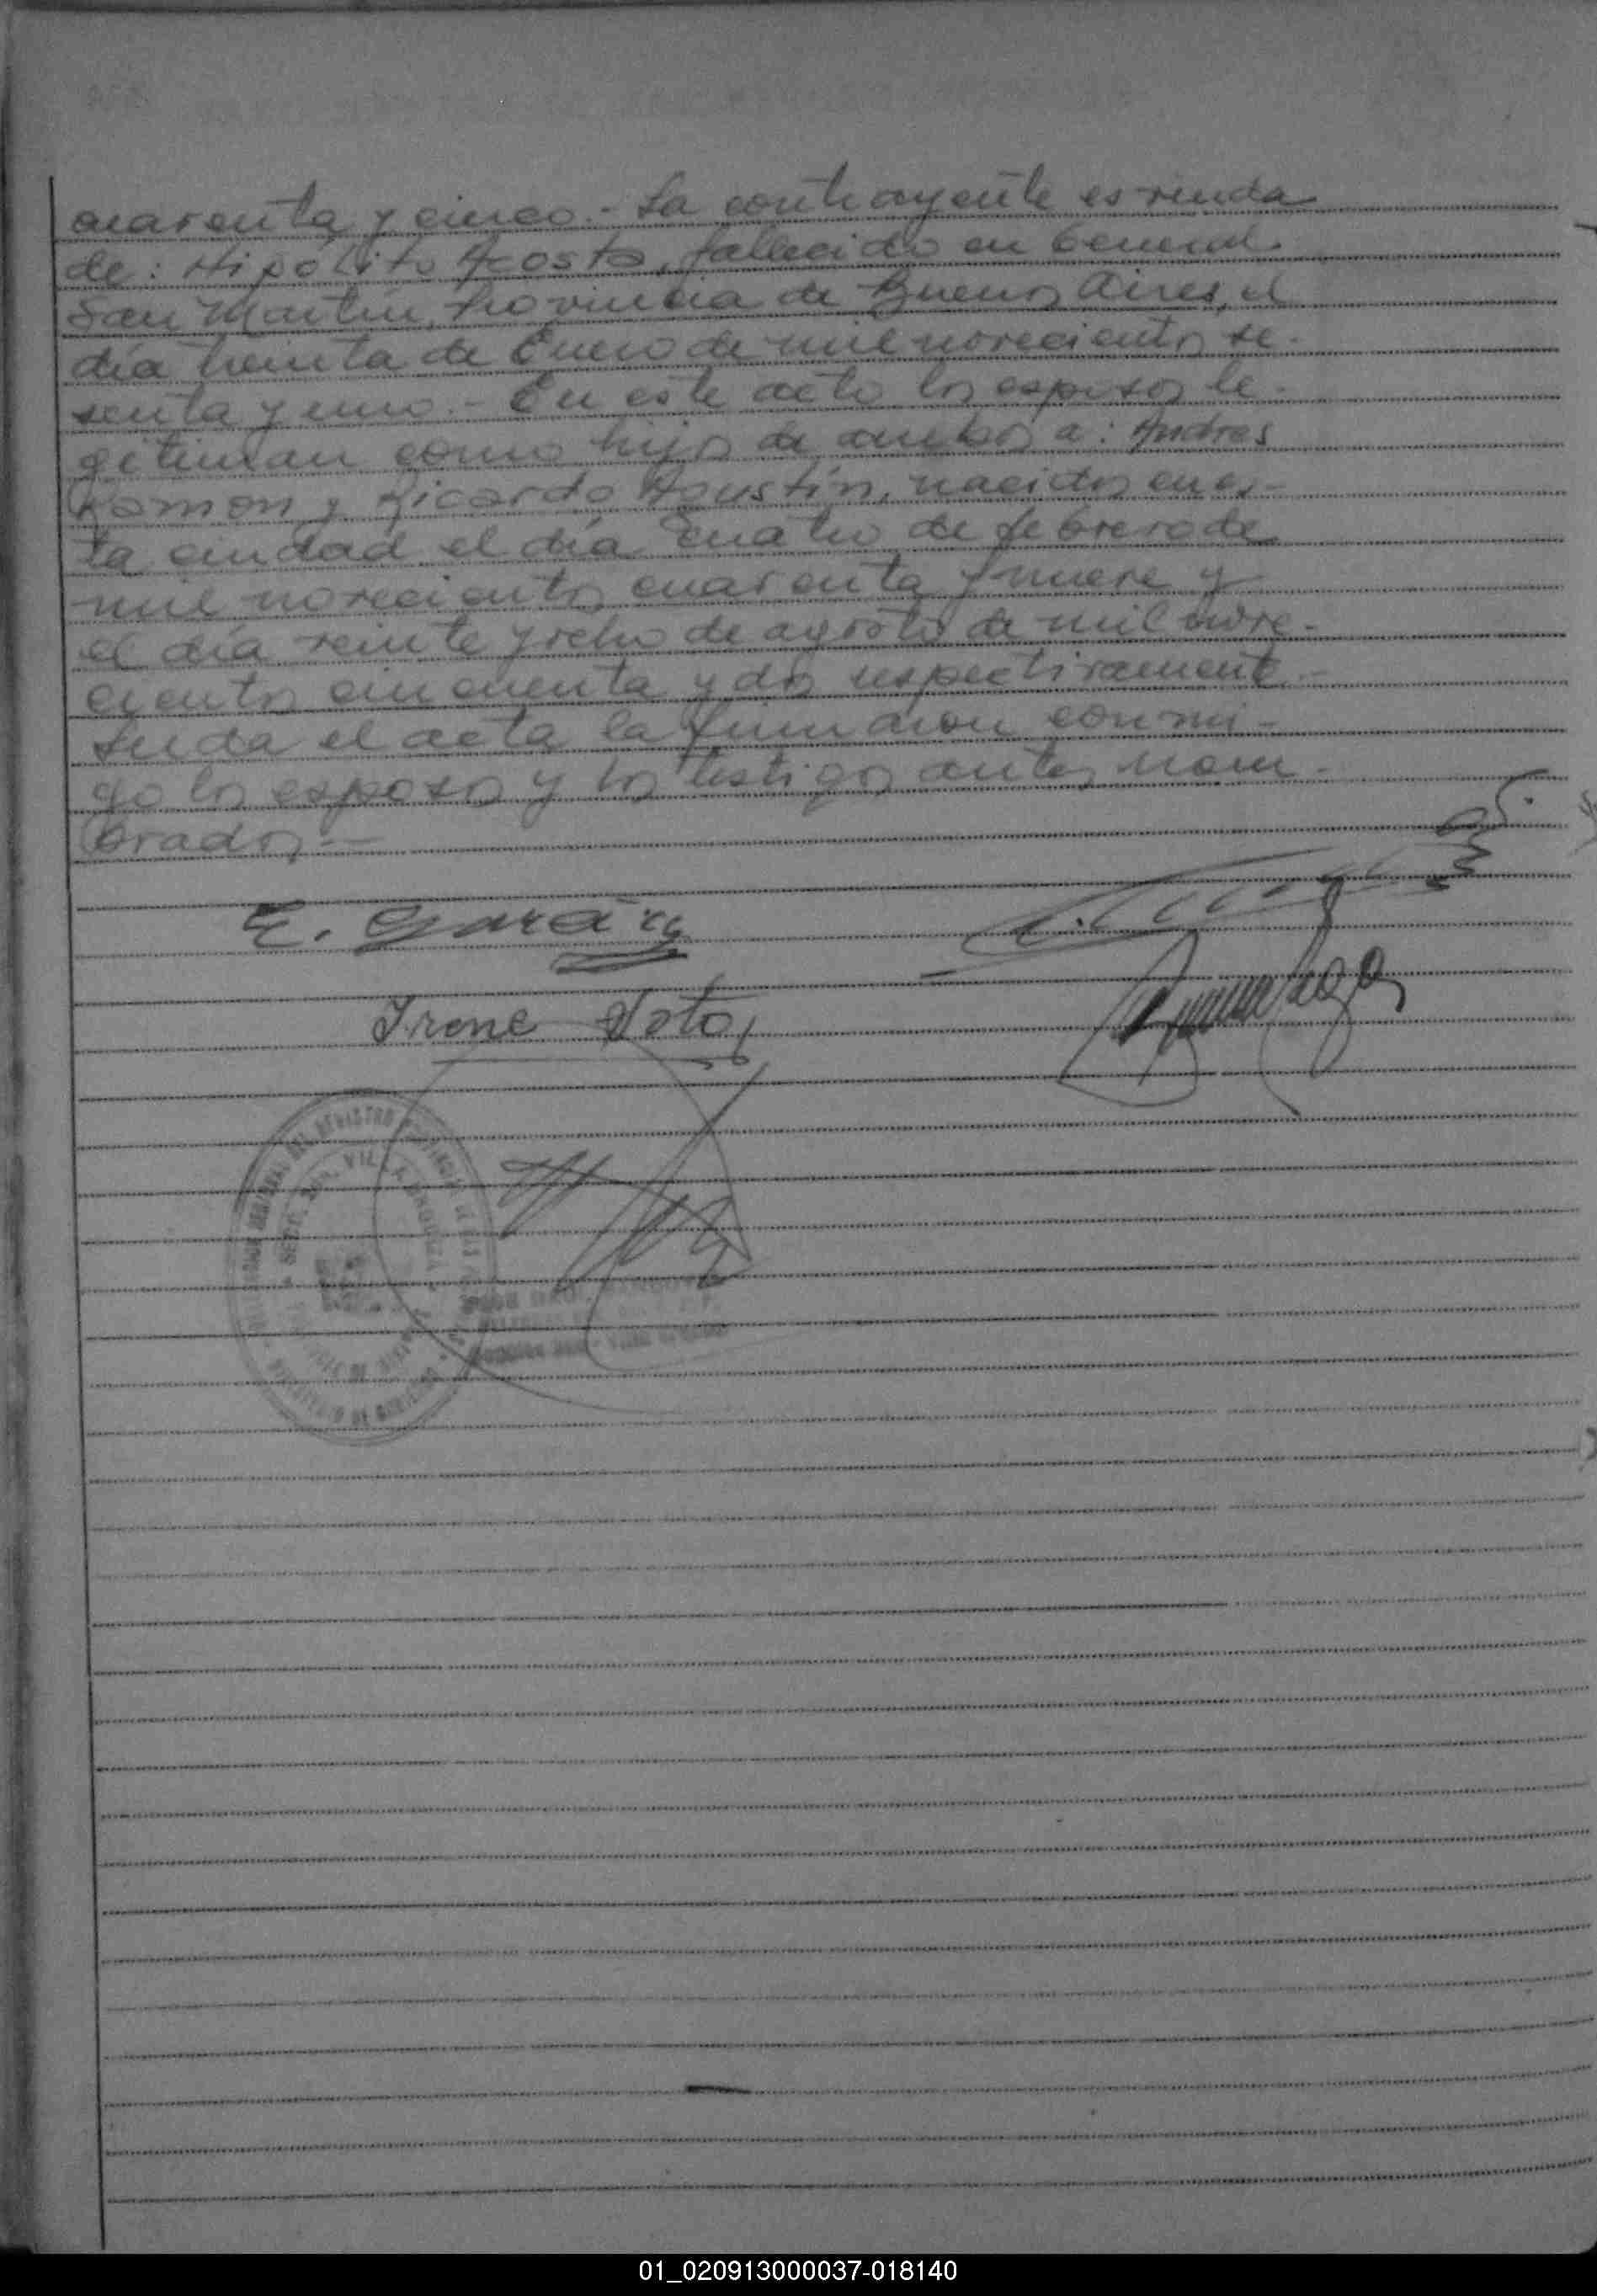 cuarenta y cinco.- La contrayente es viuda
de: Hipólito Acosta, fallecido en General
San Martín, Provincia de Buenos Aires, el
día treinta de Enero de mil novecientos se-
senta y uno.- En este acto los esposos le-
gitiman como hijos de ambos a: Andres
Ramon y Ricardo Agustín, nacidos en es-
ta ciudad el día cuatro de febrero de
mil novecientos cuarenta y nueve y
el día veinte y ocho de agosto de mil nove-
cientos cincuenta y dos respectivamente.-
Leida el acta la firmaron conmi-
go los esposos y los testigos antes nom-
brados.-
E. Garcia
Irene Soto
REGISTRO
VILLA
01_020913000037-018140